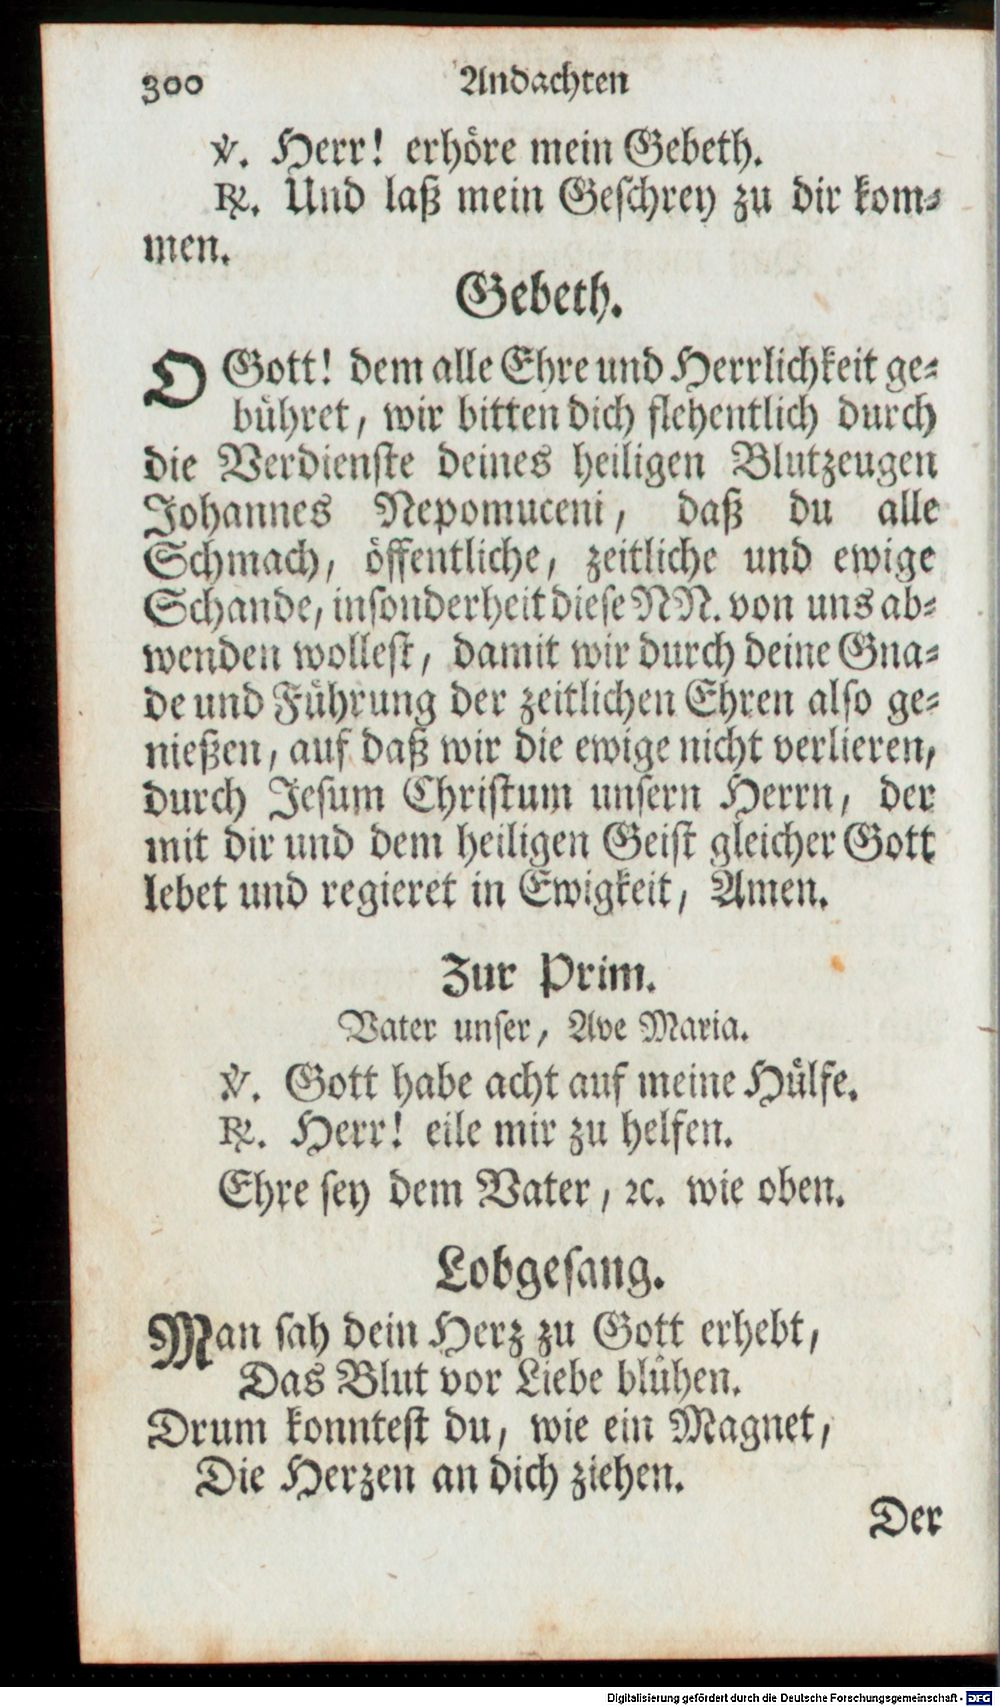 300 Andachten
℣. Herr! erhöre mein Gebeth.
℟. Und laß mein Geschrey zu dir kom-
men.
Gebeth.
O Gott! dem alle Ehre und Herrlichkeit ge-
bühret, wir bitten dich flehentlich durch
die Verdienste deines heiligen Blutzeugen
Johannes Nepomuceni, daß du alle
Schmach, öffentliche, zeitliche und ewige
Schande, insonderheit diese NN. von uns ab-
wenden wollest, damit wir durch deine Gna-
de und Führung der zeitlichen Ehren also ge-
nießen, auf daß wir die ewige nicht verlieren,
durch Jesum Christum unsern Herrn, der
mit dir und dem heiligen Geist gleicher Gott
lebet und regieret in Ewigkeit, Amen.
Zur Prim.
Vater unser, Ave Maria.
℣. Gott habe acht auf meine Hülfe.
℟. Herr! eile mir zu helfen.
Ehre sey dem Vater, ꝛc. wie oben.
Lobgesang.
Man sah dein Herz zu Gott erhebt,
Das Blut vor Liebe blühen.
Drum konntest du, wie ein Magnet,
Die Herzen an dich ziehen.
Der
Digitalisierung gefördert durch die Deutsche Forschungsgemeinschaft - DFG